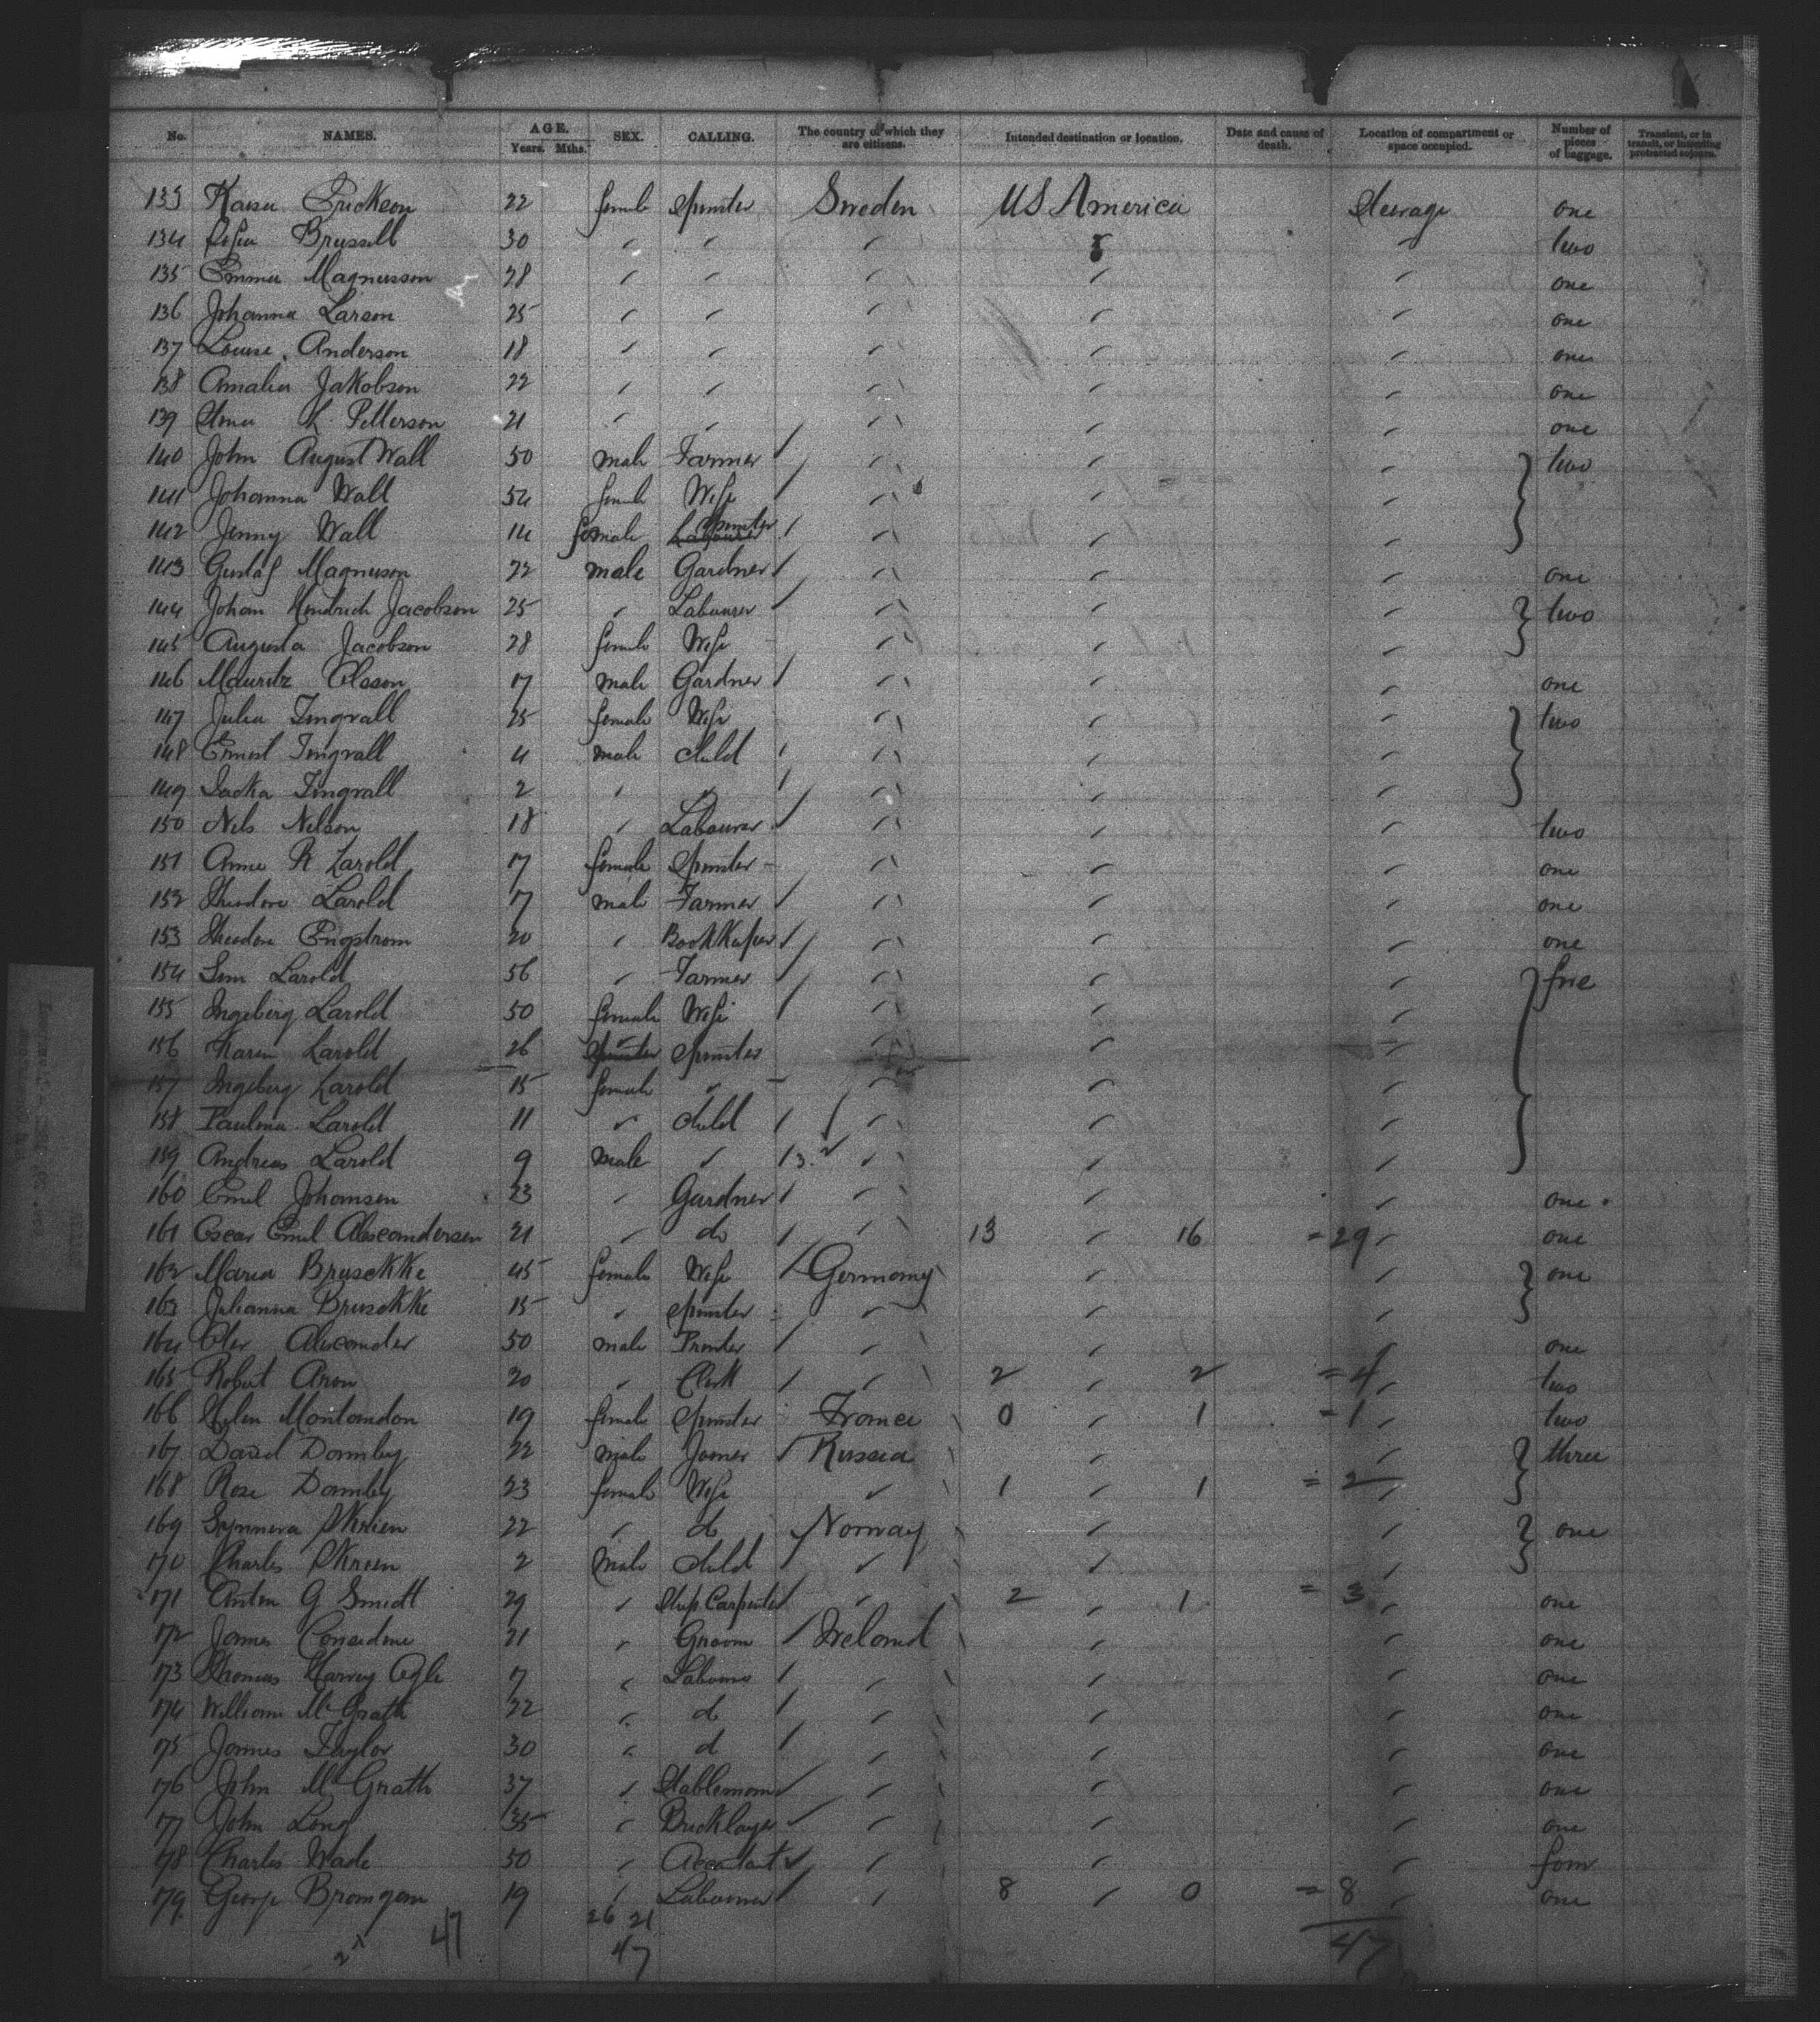 No. NAMES. AGE. Years. Mths. SEX. CALLING. The country of which they are citizens. Intended destination or location. Date and cause of death. Location of compartment or space occupied. Number of pieces of baggage. Transient, or in transit, or intending protracted sojourn.
133 Erickson 22 female Spinster Sweden US America Steerage one
134 Brussell 30 " " " " " two
135 Emma Magnusson 28 " " " " " one
136 Johanna Larson 25 " " " " " one
137 Louise Anderson 18 " " " " " one
138 Amalia Jakobson 22 " " " " " one
139 Petterson 21 " " " " " one
140 John August Wall 50 male Farmer " " " two
141 Johanna Wall 54 female Wife " " "
142 Jenny Wall 14 female Spinster " " "
143 Gustaf Magnuson 22 male Gardner " " " one
144 Johan Hendrich Jacobson 25 " Labourer " " " two
145 Augusta Jacobson 28 female Wife " " "
146 Mauritz Olsson 17 male Gardner " " " one
147 Julia Tingvall 25 female Wife " " " two
148 Ernst Tingvall 4 male child " " "
149 Tingvall 2 " " " " "
150 Nils Nelson 18 " Labourer " " " two
151 Anne K Larold 17 female Spinster " " " one
152 Theodore Larold 17 male Farmer " " " one
153 Theodore Engstrom 20 " Bookkeeper " " " one
154 Larold 56 " Farmer " " " five
155 Ingeberg Larold 50 female Wife " " "
156 Karin Larold 26 " spinster " " "
157 Ingeberg Larold 15 female " " " "
158 Paulina Larold 11 " child " " "
159 Andreas Larold 9 male " 3. " " "
160 Emil Johansen 23 " Gardner " " " one
161 Oscar Emil Alexandersen 21 " do " 13 " 16 = 29 " one
162 Maria Bruschke 45 female Wife Germany " " one
163 Julianna Bruschke 15 " spinster " " "
164 Alexander 50 male Printer " " " one
165 Robert Aron 20 " Clerk " 2 " 2 = 4 " two
166 Helen Montandon 19 female Spinster France 0 " 1 = 1 " two
167 David Dannby 22 male Joiner Russia " " three
168 Rose Dannby 23 female Wife " 1 " 1 = 2 "
169 Synneva Skrien 22 " do Norway " " one
170 Charles Skrien 2 male child " " "
171 Anton G Smidt 29 " Ship Carpenter " 2 " 1 = 3 " one
172 James Considine 21 " Groom Ireland " " one
173 Thomas Harvey Ogle 17 " Labourer " " " one
174 William Mc Grath 22 " do " " " one
175 James Taylor 30 " do " " " one
176 John Mc Grath 37 " Stableman " " " one
177 John Long 35 " Bricklayer " " " one
178 Charles Wade 50 " " " " four
179 George 19 " Labourer " 8 " 0 = 8 " one
47 26 21
47 47